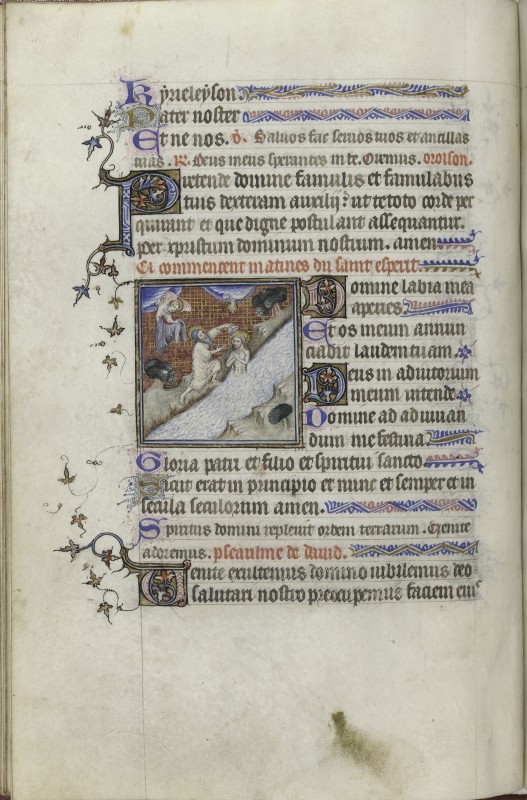 Kyrieleyson
Pater noster
Et ne nos. v. Saluos fac seruos tuos et ancillas
tuas. R. Deus meus sperantes in te. Oremus. oroison.
Pretende domine famulis et famulabus
tuis dexteram auxilij: ut te toto corde per
quirant et que digne postulant assequantur.
per xpristum dominum nostrum. amen
Ci commencent matines du saint esperit
Domine labia mea
aperies.
Et os meum annun
ciabit laudem tuam.
Deus in adiutorium
meum intende
Domine ad adiuuan
dum me festina
Gloria patri et filio et spiritui sancto
Sicut erat in principio et nunc et semper et in
secula seculorum amen.
Spiritus domini repleuit ordem terrarum. Uenite
adoremus. pseaulme de dauid.
Uenite exultemus domino iubilemus deo
salutari nostro preocupemus faciem eius